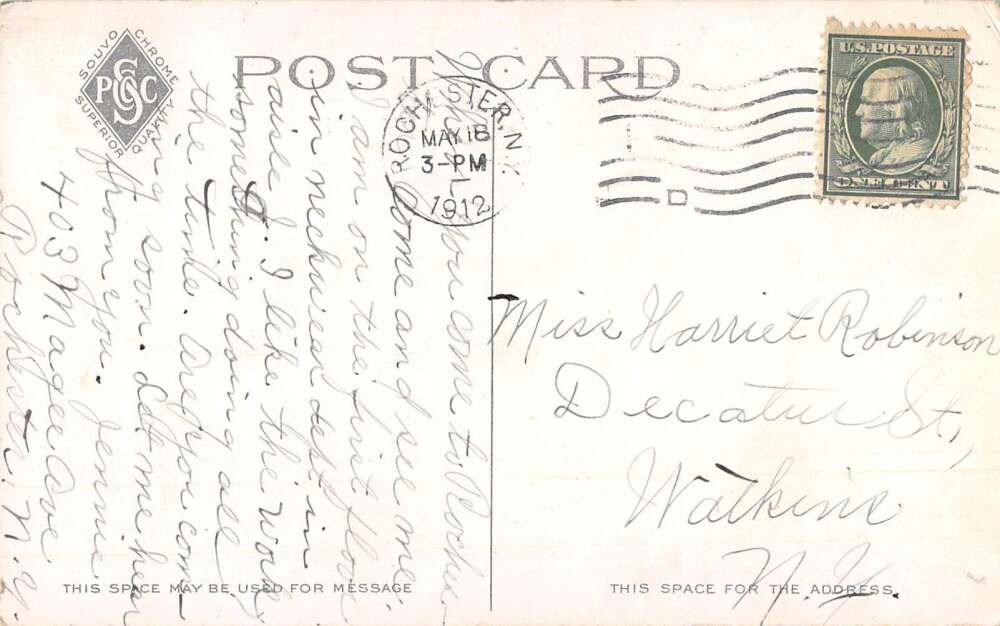 SOUVO CHROME
SUPERIOR QUALITY
PSCC
POST CARD
U.S. POSTAGE
ONE CENT
ROCHESTER, N.Y.
MAY 16
3-PM
1912
D
When you come to Roches.
Come and see me.
I am on the first floor
in neckwear dept. in
aisle I. I like the work
something doing all
the time. Are you com
ing soon. Let me hear
from you. Jennie.
403 Magee Ave
Rochester. N.Y.
Miss Harriet Robinson
Decatur St,
Watkins
N.Y.
THIS SPACE MAY BE USED FOR MESSAGE
THIS SPACE FOR THE ADDRESS.